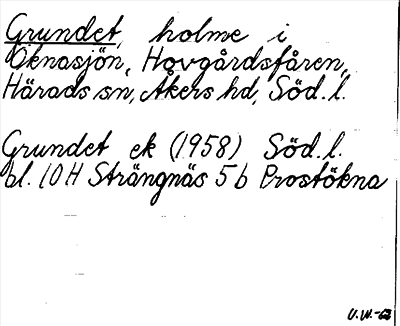 Grundet, holme i
Öknasjön, Hovgårdsfåren,
Härads sn, Åkers hd, Söd. l.
Grundet ek (1958) Söd. l.
bl. 10 H Strängnäs 5 b Prostökna
U.W.-62